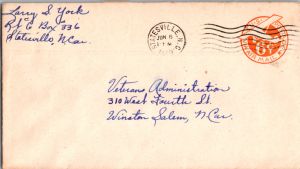 Larry S. York
Rt 6 Box 336
Statesville, N. Car.
STATESVILLE, N.C.
JUN 6
6¢
AIR MAIL
Veterans Administration
310 West Fourth St.
Winston Salem, N. Car.